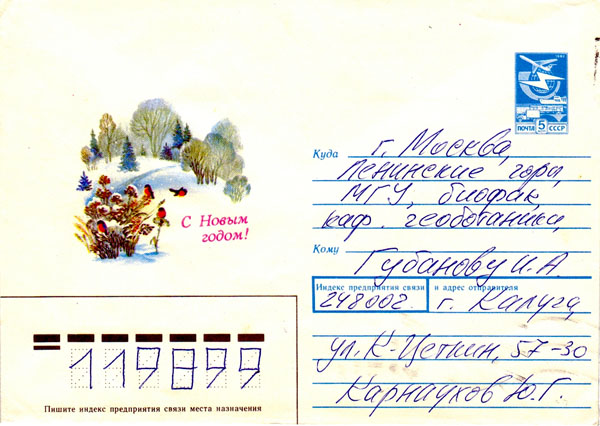 ПОЧТА 5 СССР
С Новым
годом!
Куда г. Москва,
Ленинские горы,
МГУ, биофак,
каф. геоботаники,
Кому Губанову И.А.
Индекс предприятия связи и адрес отправителя
248002 г. Калуга,
ул. К-Цеткин, 57-30
Карнауков Ю.Г.
119899
Пишите индекс предприятия связи места назначения